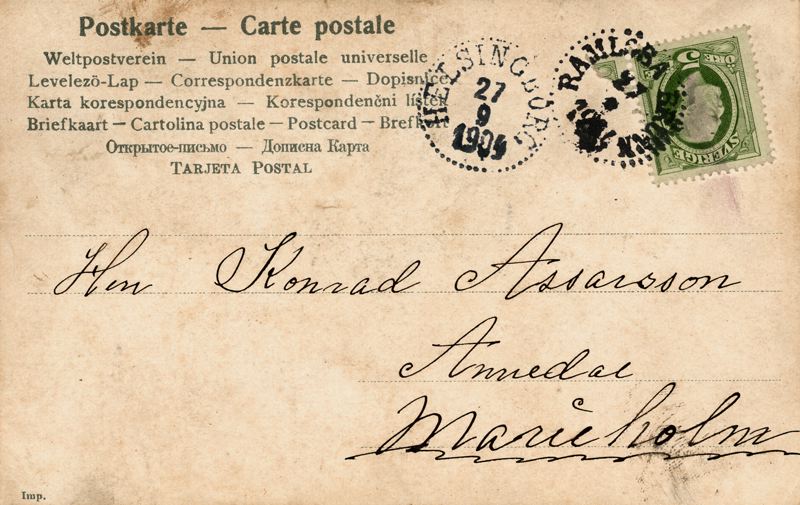 Postkarte — Carte postale
Weltpostverein — Union postale universelle
Levelezö-Lap — Correspondenzkarte — Dopisnice
Karta korespondencyjna — Korespondenční lístek
Briefkaart — Cartolina postale — Postcard — Brefkort
Открытое-письмо — Дописна Карта
TARJETA POSTAL
HELSINGBORG
27
9
1905
RAMLÖSA BRUNN
27
9
5 ÖRE
SVERIGE
Herr Konrad Assarsson
Annedal
Marieholm
Imp.